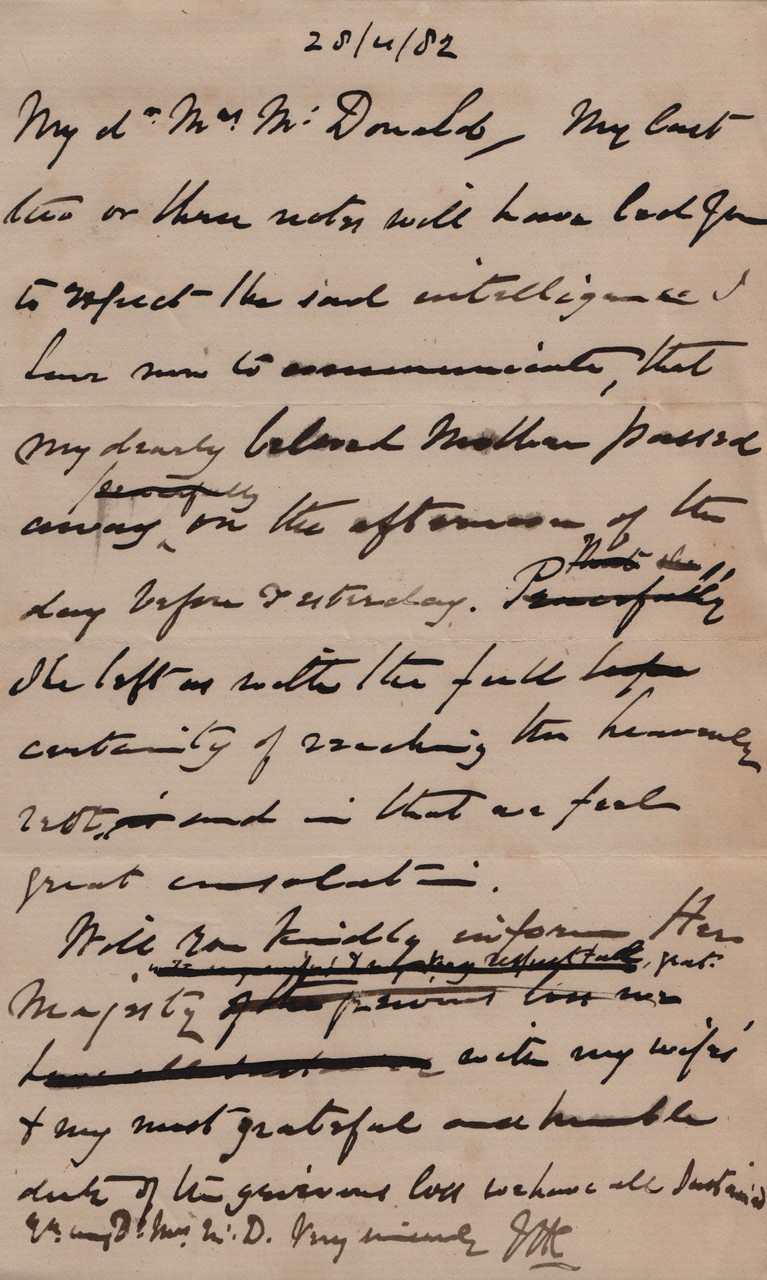 28/11/82
My dr Mrs McDonald, My last
two or three notes will have led you
to expect the sad intelligence I
have now to communicate, that
my dearly beloved Mother passed
peacefully
away on the afternoon of the
day before yesterday. Peacefully
that she
She left us with the full hope
certainity of reaching the heavenly
rest, and in that we feel
great consolation.
Will you kindly inform Her
Majesty of the grievous loss we
have all sustained with my wife's
& my most grateful and humble
duty of the grievous loss we have all sustained
Dr Mrs McD. Very sincerely